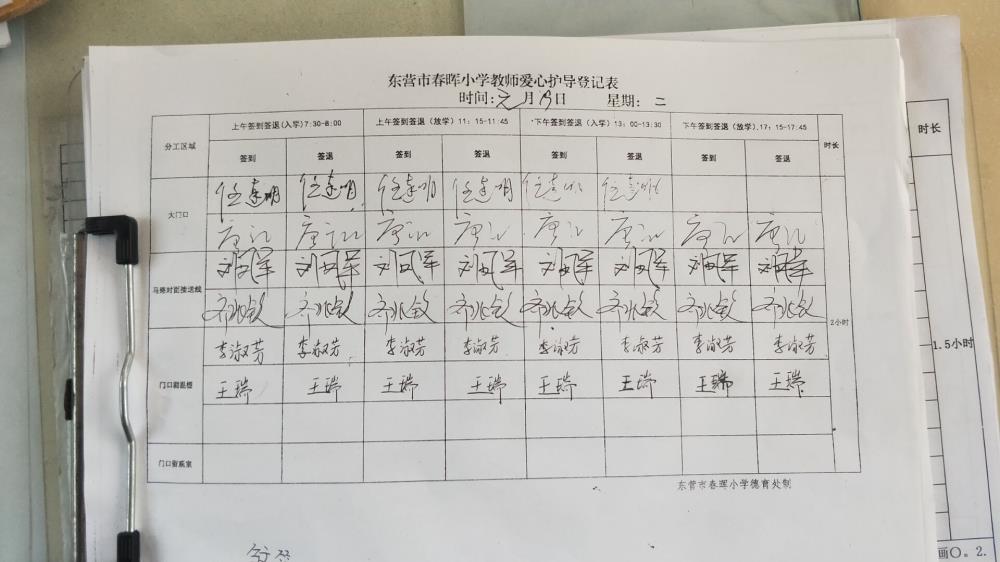 东营市春晖小学教师爱心护导登记表
时间: 元月 日 星期: 二
分工区域 上午签到签退(入学)7:30-8:00 上午签到签退(放学)11:15-11:45 下午签到签退(入学)13:00-13:30 下午签到签退(放学).17:15-17:45 时长
签到 签退 签到 签退 签到 签退 签到 签退
大门口 任建明 任建明 任建明 任建明 任建明 任建明
唐江 唐江 唐江 唐江 唐江 唐江 唐江 唐江
马路对面接送线 刘凤军 刘凤军 刘凤军 刘凤军 刘凤军 刘凤军 刘凤军 刘凤军
齐兆敏 齐兆敏 齐兆敏 齐兆敏 齐兆敏 齐兆敏 齐兆敏 齐兆敏
2小时
李淑芳 李淑芳 李淑芳 李淑芳 李淑芳 李淑芳 李淑芳 李淑芳
王瑞 王瑞 王瑞 王瑞 王瑞 王瑞 王瑞 王瑞
东营市春晖小学德育处制
时长
1.5小时
画〇。2.